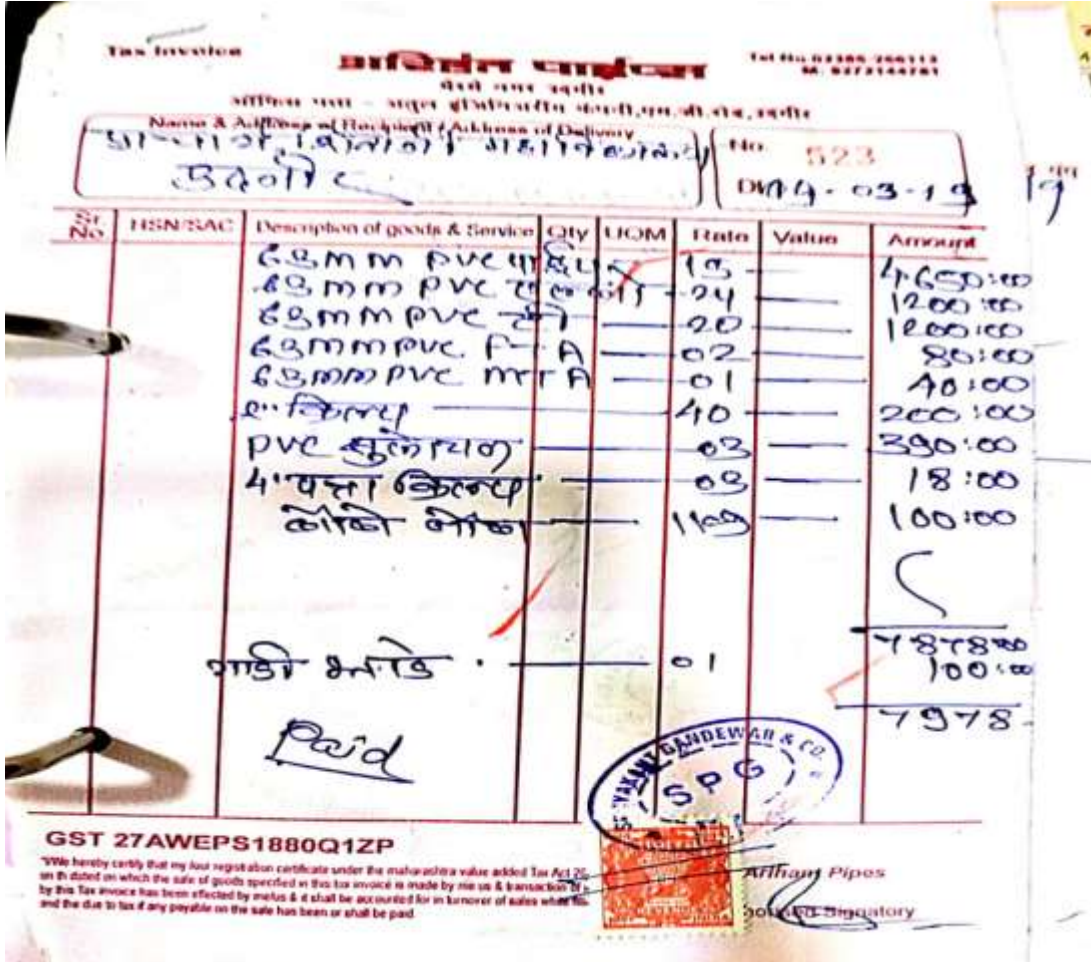 Tax Invoice
अरिहंत पाईप्स
Tel No.02385-256113
M: 9373144781
नगर उदगीर
ऑफिस पत्ता - अतुल इंजिनिअरींग कंपनी,एम.जी.रोड,उदगीर
Name & Address of Recipient / Address of Delivery
उदगीर
No. 523
Dt 14-03-19
Sr. No. HSN/SAC Description of goods & Service Qty UOM Rate Value Amount
63mm PVC पाईप 15 4650:00
63mm PVC 24 1200:00
63mm PVC टी 20 1200:00
63mm PVC F T A 02 80:00
63mm PVC M T A 01 40:00
क्लिप 40 200:00
PVC सुलेशन 03 390:00
4" पत्ता क्लिप 03 18:00
100:00
7878:00
गाडी भाडे 01 100:00
7978
Paid
GANDEWAR & CO.
SPG
GST 27AWEPS1880Q1ZP
"I/We hereby certify that my /our registration certificate under the maharashtra value added Tax Act 20
on th dated on which the sale of goods specified in this tax invoice is made by me us & transaction of
by this Tax invoice has been effected by me/us & it shall be accounted for in turnover of sales while
and the due to tax if any payable on the sale has been or shall be paid.
Arihant Pipes
Signatory